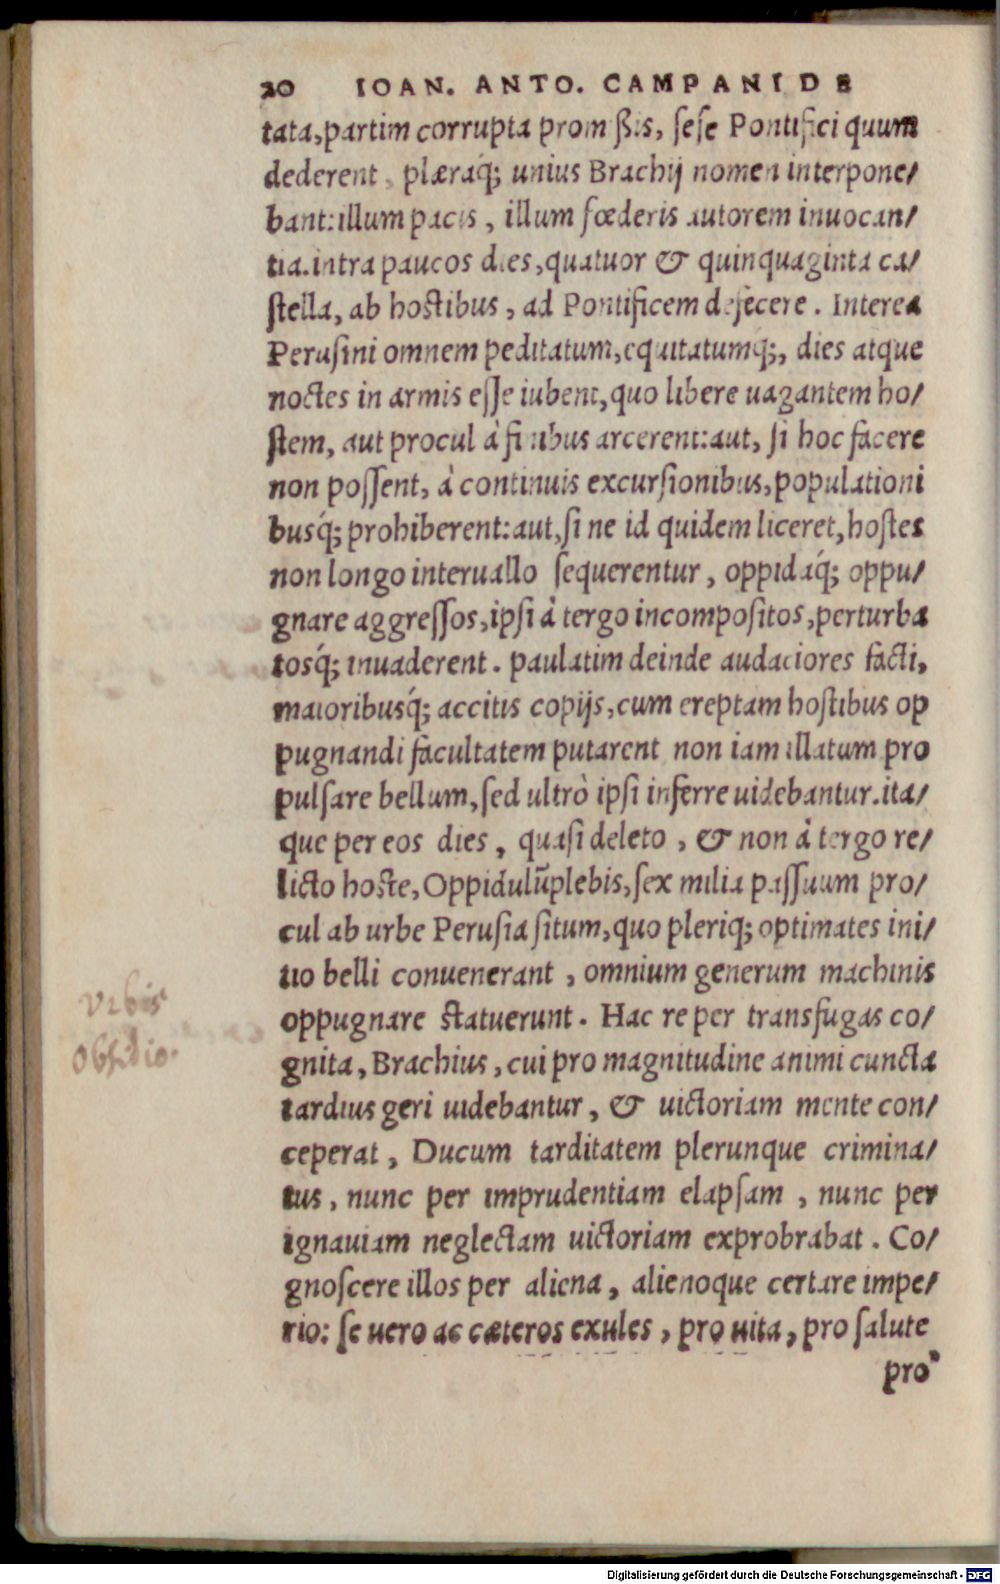 20 IOAN. ANTO. CAMPANI DE
tata, partim corrupta promißis, ſeſe Pontifici quum
dederent, plæraq́; unius Brachij nomen interpone/
bant: illum pacis, illum fœderis autorem inuocan/
tia. intra paucos dies, quatuor & quinquaginta ca/
ſtella, ab hoſtibus, ad Pontificem defecere. Interea
Peruſini omnem peditatum, equitatumq́;, dies atque
noctes in armis eſſe iubent, quo libere uagantem ho/
ſtem, aut procul à finibus arcerent: aut, ſi hoc facere
non poſſent, à continuis excurſionibus, populationi
busq́; prohiberent: aut, ſi ne id quidem liceret, hoſtes
non longo interuallo ſequerentur, oppidaq́; oppu/
gnare aggreſſos, ipſi à tergo incompoſitos, perturba
tosq́; inuaderent. paulatim deinde audaciores facti,
maioribusq́; accitis copijs, cum ereptam hoſtibus op
pugnandi facultatem putarent non iam illatum pro
pulſare bellum, ſed ultrò ipſi inferre uidebantur. ita/
que per eos dies, quaſi deleto, & non à tergo re/
licto hoſte, Oppidulũ plebis, ſex milia paſſuum pro/
cul ab urbe Peruſia ſitum, quo pleriq; optimates ini/
tio belli conuenerant, omnium generum machinis
oppugnare ſtatuerunt. Hac re per transfugas co/
gnita, Brachius, cui pro magnitudine animi cuncta
tardius geri uidebantur, & uictoriam mente con/
ceperat, Ducum tarditatem plerunque crimina/
tus, nunc per imprudentiam elapſam, nunc per
ignauiam neglectam uictoriam exprobrabat. Co/
gnoſcere illos per aliena, alienoque certare impe/
rio: ſe uero ac cæteros exules, pro uita, pro ſalute
pro
Vrbis
Obſidio.
Digitalisierung gefördert durch die Deutsche Forschungsgemeinschaft - DFG